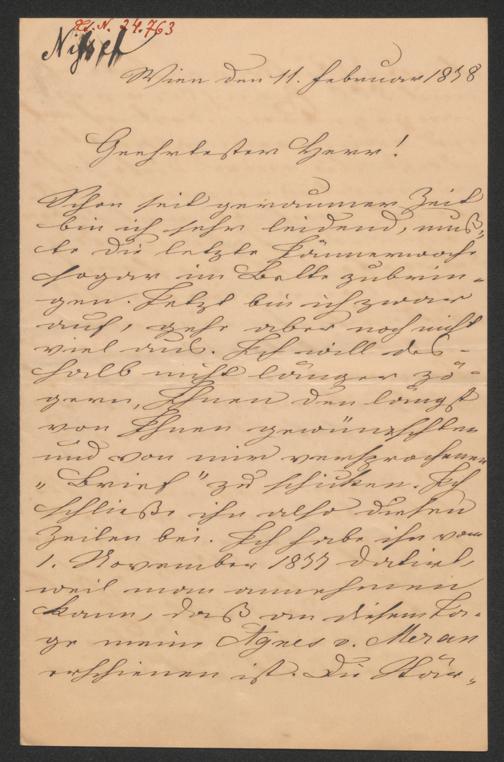 I. N. 24.763
Nissel
Wien den 11. Februar 1878
Geehrtester Herr!
Schon seit geraumer Zeit
bin ich sehr leidend, muß-
te die letzte Jännerwoche
sogar im Bette zubrin-
gen. Jetzt bin ich zwar
auf, gehe aber noch nicht
viel aus. Ich will des-
halb nicht länger zö-
gern, Ihnen den längst
von Ihnen gewünschten
und von mir versprochenen
„Brief" zu schicken. Ich
schließe ihn also diesen
Zeilen bei. Ich habe ihn vom
1. November 1877 datirt,
weil man annehmen
kann, daß an diesem Ta-
ge meine Agnes v. Meran
erschienen ist. Die